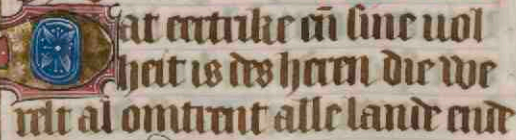 Dat eertrike eñ sine uol
heit is des heren die we
relt al omtrent alle lande ende